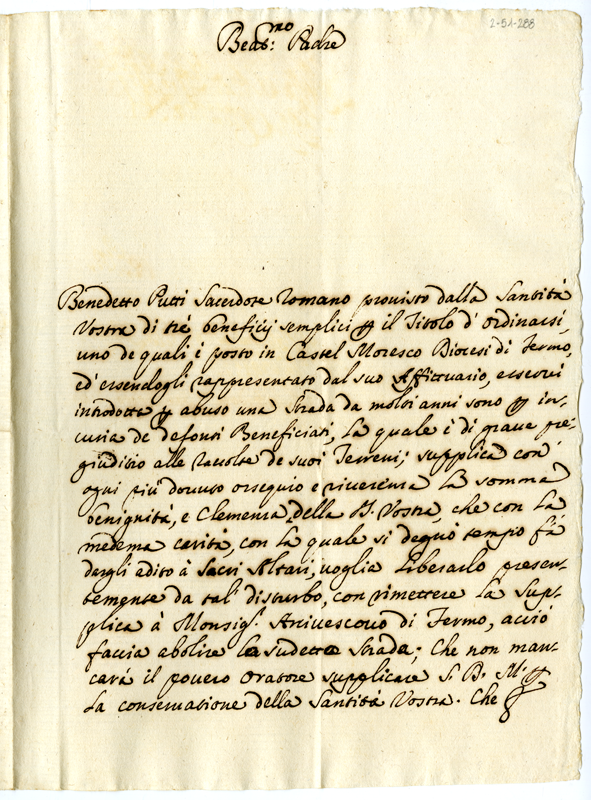 2-51-288
Beat:mo Padre
Benedetto Putti Sacerdote Romano provisto dalla Santità
Vostra di trè beneficij semplici p il Titolo d'Ordinarsi,
uno de quali è posto in Castel Moresco Diocesi di Fermo,
ed'essendogli rappresentato dal suo Affittuario, esservi
introdotta p abuso una strada da molti anni sono p in-
curia de defonti Beneficiati, la quale è di grave pre-
giuditio alle raccolte de suoi Terreni; supplica con
ogni più dovuto ossequio e riverenza la somma
benignità, e Clemenza della S. Vostra, che con la
medema carità, con la quale si degnò tempo fà
dargli adito à Sacri Altari, voglia liberarlo presen-
temente da tal disturbo, con rimettere la sup-
plica à Monsig.r Arcivescovo di Fermo, acciò
faccia abolire la sudetta strada; Che non man-
carà il povero oratore supplicare S. D. M. p
la conservatione della Santità Vostra. Che